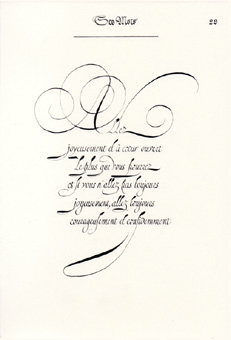 Ses Mots
Allez
joyeusement et à cœur ouvert
le plus que vous pourrez
et si vous n'allez pas toujours
joyeusement, allez toujours
courageusement et confidemment